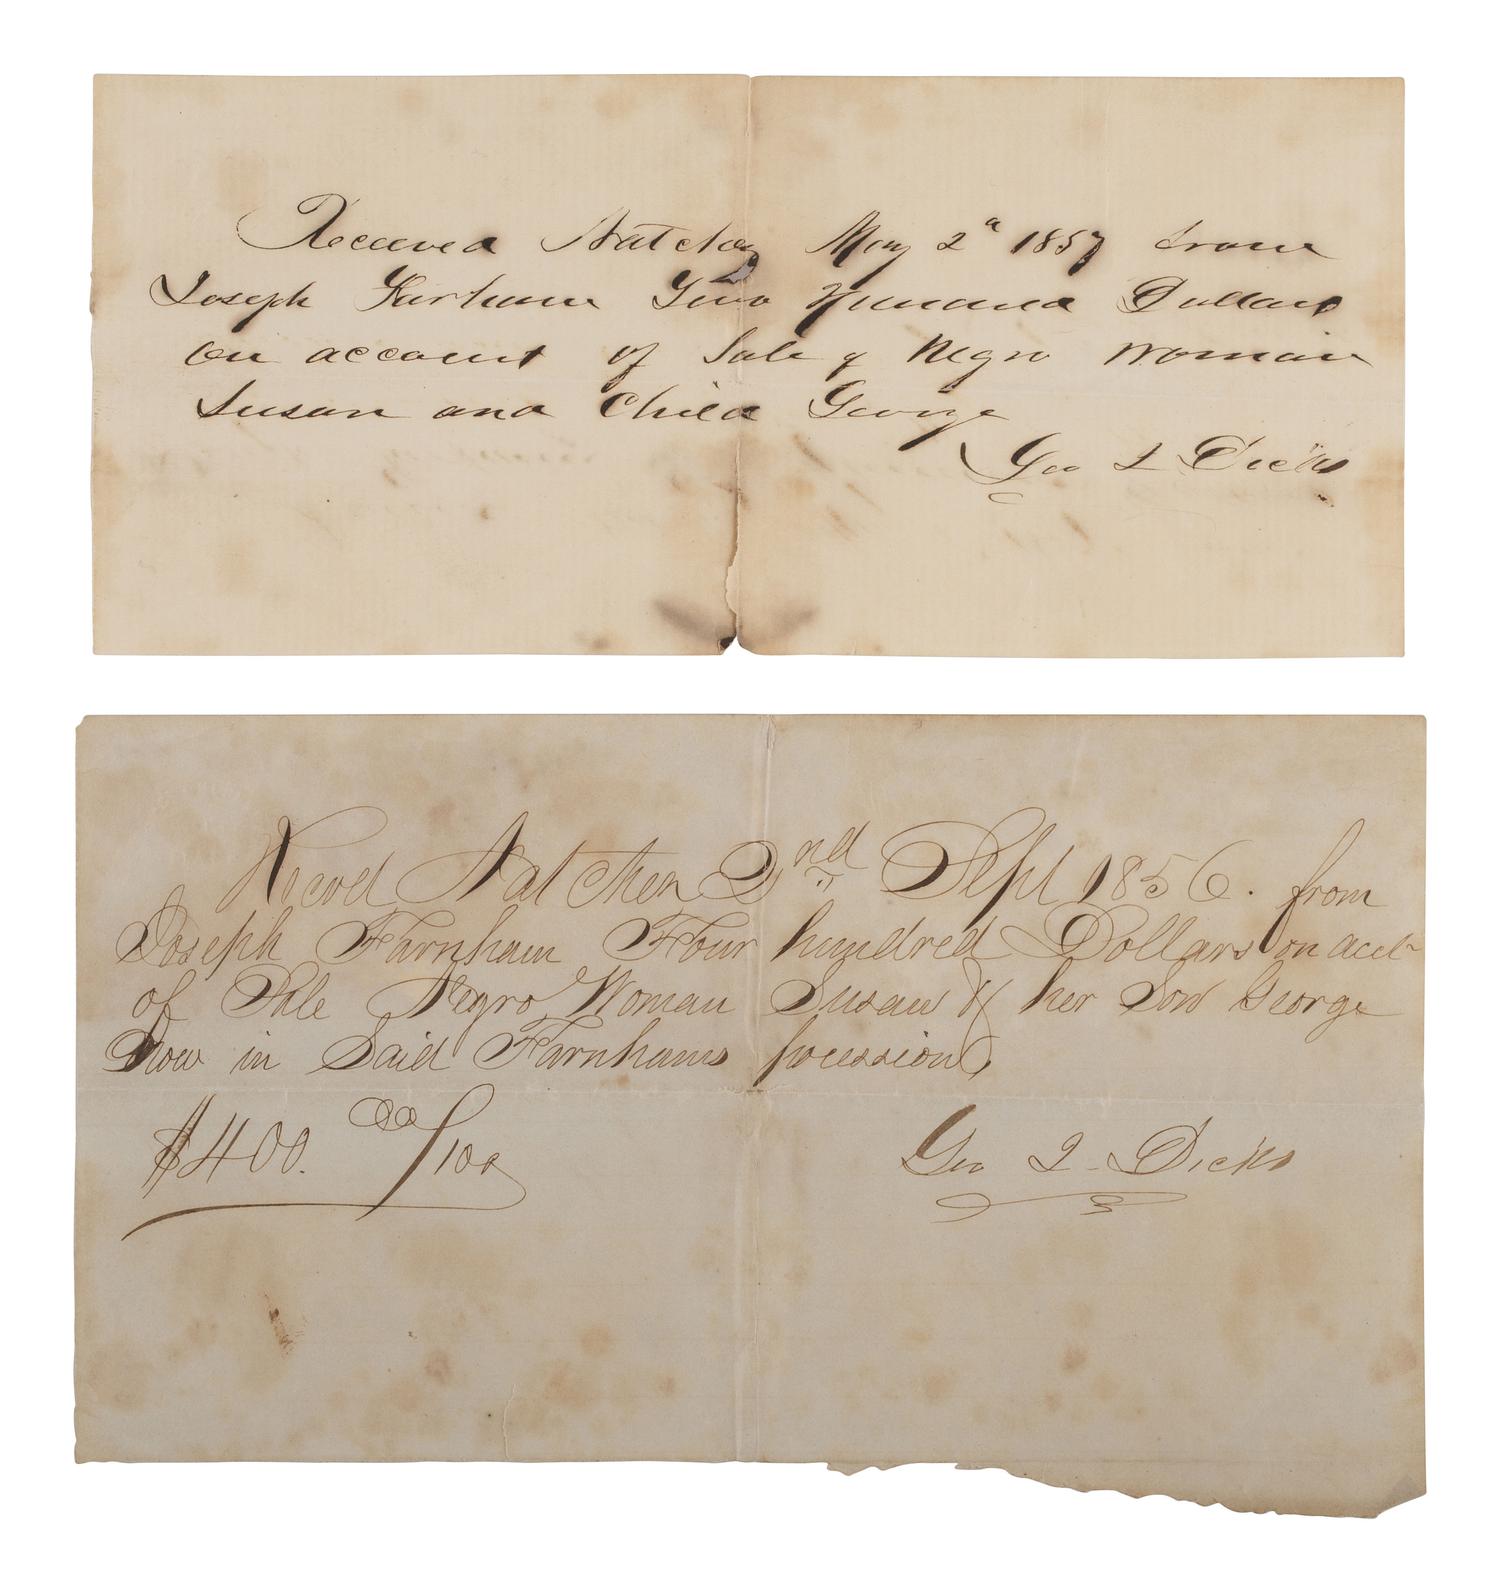 Received Natchez May 2d 1857 from
Joseph Farnham Two Hundred Dollars
on account of Sale of Negro Woman
Susan and Child George
Geo L Dicks
Recevd Natchez 2nd Sept 1856. from
Joseph Farnham Four hundred Dollars on acct
of Sale Negro Woman Susan & her Son George
Now in Said Farnhams
$400. 00/100
Geo L Dicks